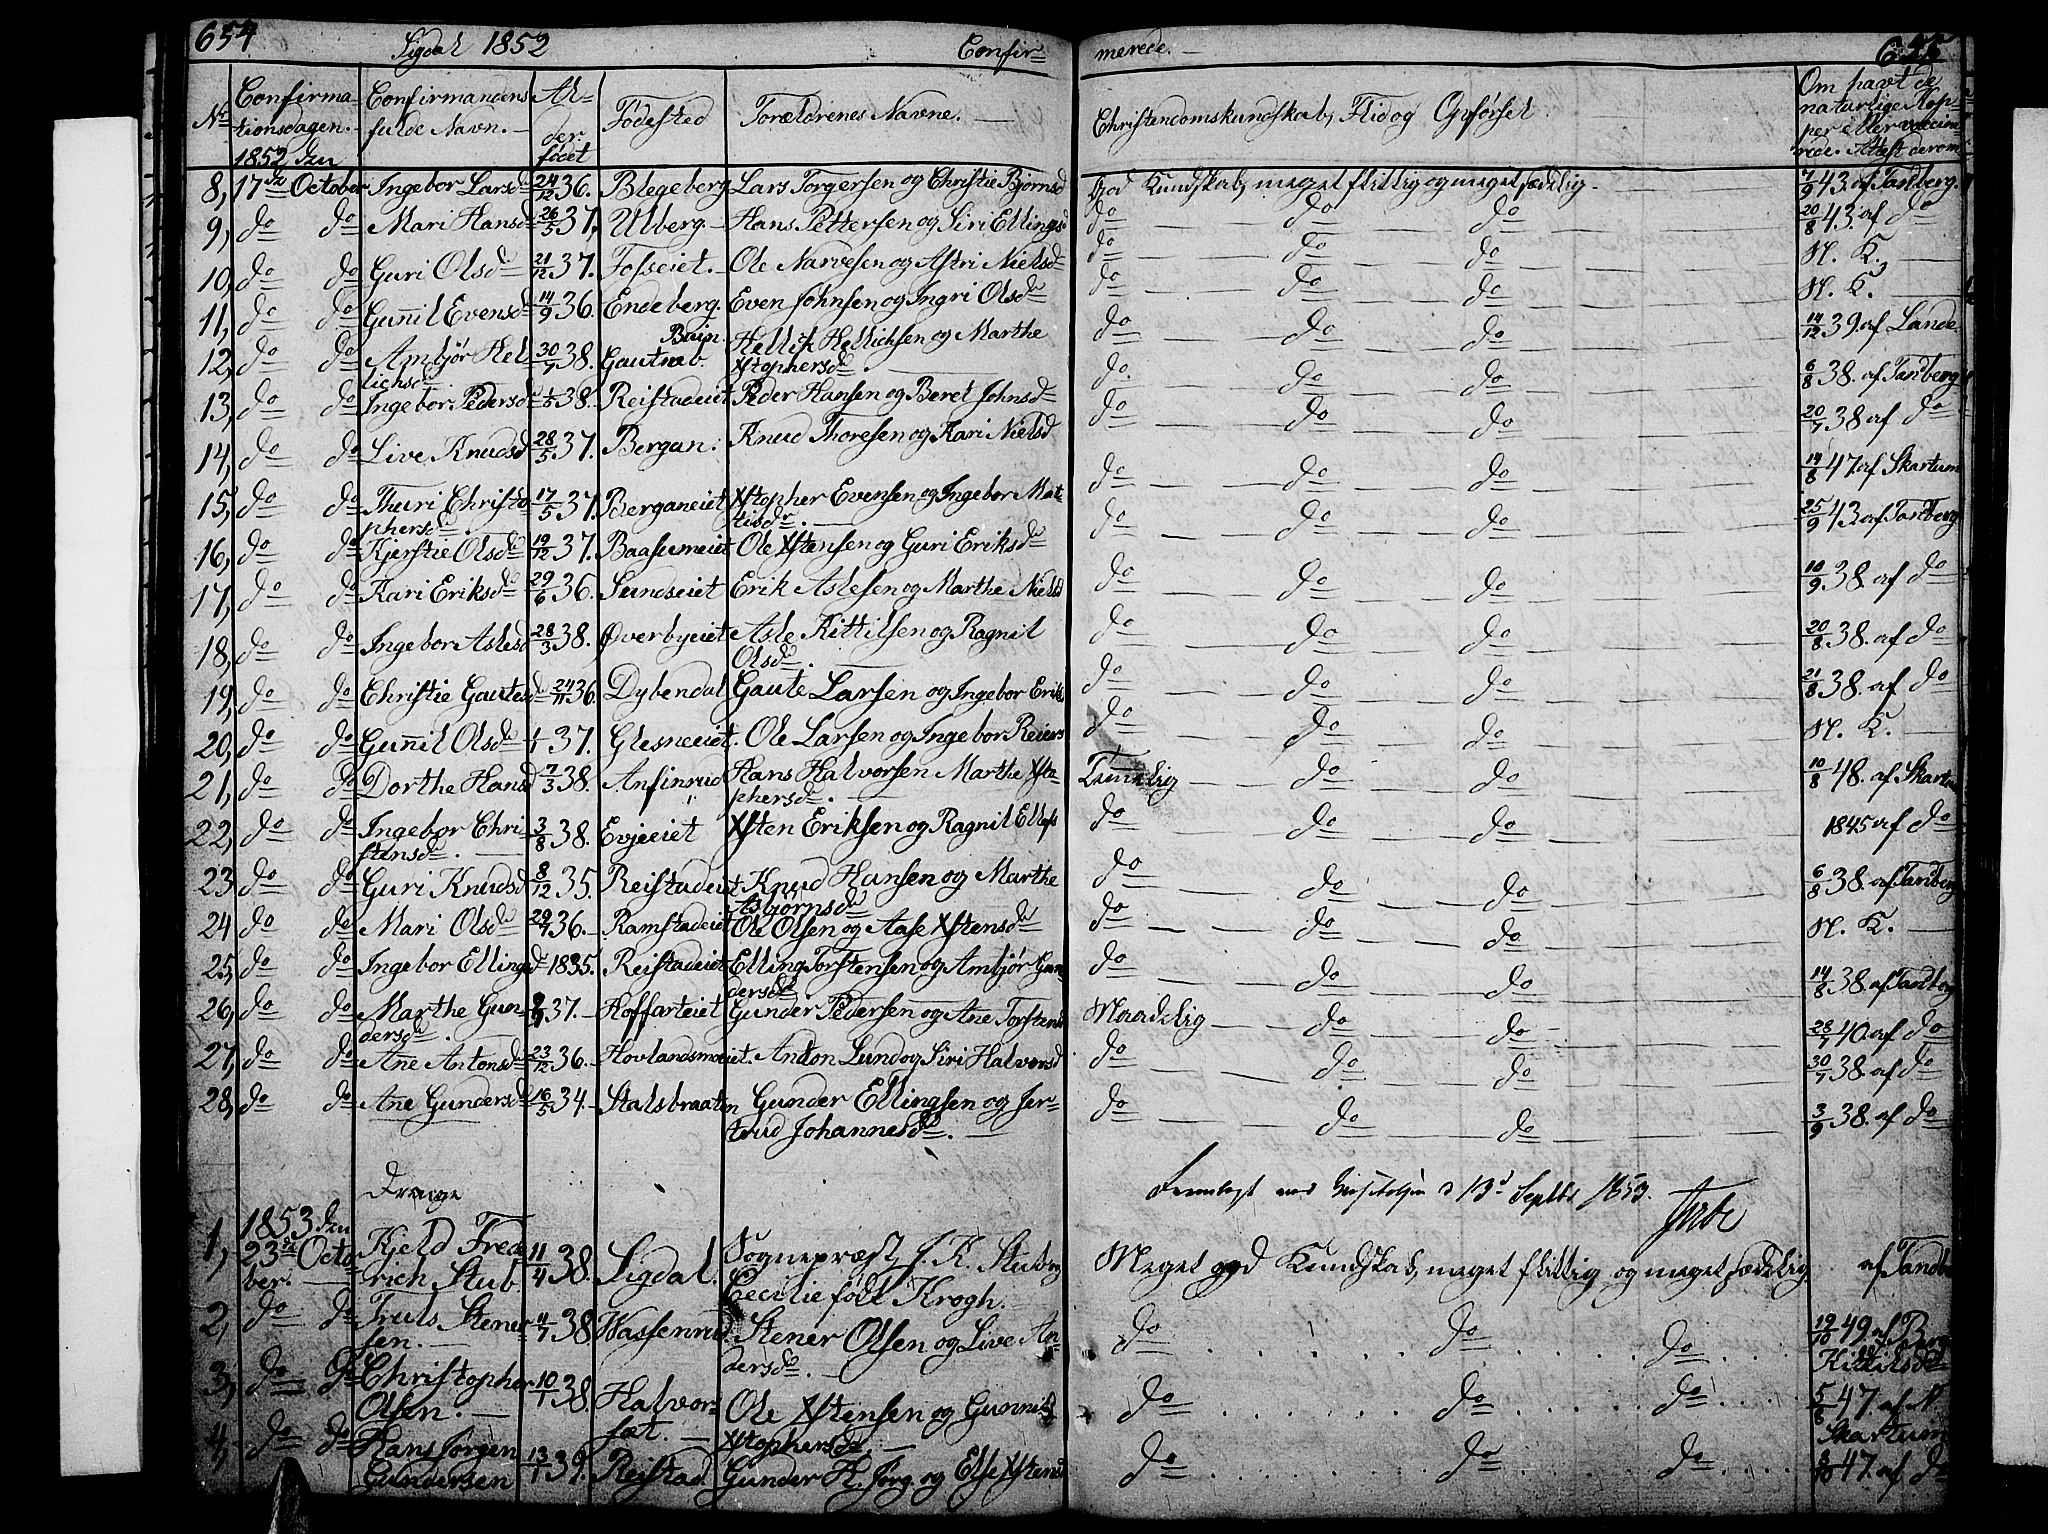 654 Sigdal 1852 Confir- merede. 655
No Confirma- tionsdagen. Confirmandens fulde Navn. Al- der født Fødested Forældrenes Navne. Christendomskundskab, Flid og Opførsel Om havt de naturlige Kop- per eller vaccine- rede. Attest derom
1852 den
8, 17de October Ingebor Larsd 24/12 36. Blegeberg Lars Torgersen og Christie Bjørnsd God Kundskab, meget flittig og meget sædelig. 7/9 43. af Tandberg.
9, do do Mari Hansd 26/5 37, Ulberg. Hans Pettersen og Siri Ellingsd do do do 20/8 43. af do
10, do do Guri Olsd 21/12 37. Fosseiet. Ole Narvesen og Astri Nielsd do do do N. K.
11, do do Gunnil Evensd 14/9 36. Endeberg. Even Johnsen og Ingri Olsd do do do N. K.
12, do do Ambjør Hel- lichsd 30/7 38. Gautneb. Hellik Hellichsen og Marthe Xstophersd. do do do 14/12 39. af Lande.
13, do do Ingebor Pedersd 38. Reistadeiet Peder Hansen og Beret Johnsd do. do do 6/8 38. af Tandberg
14, do do Live Knudsd 28/5 37. Bergan. Knud Thoresen og Kari Nielsd do do do 20/7 38 af do
15, do do Thuri Christo- phersd. 17/5 37. Berganeiet Xstopher Evensen og Ingebor Mat- tisdr. do do do 14/8 47. af Skartum
16, do do Kjerstie Olsd 19/12 37. Baasumeiet Ole Xstensen og Guri Eriksd do do do 25/9 43. af Tandberg
17, do do Kari Eriksd 29/6 36. Sundseiet Erik Aslesen og Marthe Nielsd do do do 10/9 38. af do
18, do do Ingebor Aslesd 28/3 38. Øverbyeiet Asle Kittilsen og Ragnil Olsd. do do do 20/8 38. af do
19, do do Christie Gautesd 24/11 36. Dybendal Gaute Larsen og Ingebor Eriks do do do 21/8 38. af do
20, do do Gunnil Olsd 37. Glesneeiet. Ole Larsen og Ingebor Reiers do do do N. K.
21, do do Dorthe Hansd 7/3 38. Anfinrud Hans Halvorsen Marthe Xsto- phersd. Temelig do do 10/8 48. af Skartum
22, do do Ingebor Chri- stensd. 3/8 38. Evjeeiet Xsten Eriksen og Ragnil Ellefs do do do 1845 af do
23 do do Guri Knudsd 8/12 35. Reistadeiet. Knud Hansen og Marthe Asbjørnsd do do do 6/8 38. af Tandberg
24 do do Mari Olsd 29/7 36. Ramstadeiet Ole Olsen og Aase Xstensd do do do N. K.
25, do do Ingebor Ellingsd 1835. Reistadeiet Elling Torstensen og Ambjør Gun- dersd do do do 14/8 38. af Tandberg
26, do do Marthe Gun- dersd. 37. Hoffarteiet Gunder Pedersen og Ane Torstensd Maadelig do do 28/7 40. af do
27, do do Ane Antonsd 23/12 36. Hovlandsmoeiet. Anton Lund og Siri Halvorsd do do do 30/7 38. af do
28, do do Ane Gundersd 16/5 34. Stalsbraaten Gunder Ellingsen og Jer- trud Johannesd. do do do 3/9 38. af do
Drenge Fremlagt ved Visitatsen d 13d Septbr 1853.
1, 1853 den 23de Octo- ber. Kjeld Frede- rich Stub. 11/4 38. Sigdal. Sognepræst, J. K. Stub og Cecilie født Krogh. Meget god Kundskab, meget flittig og meget sædelig af Tandb
2, do do Truls Stener- sen. 4/7 38. Wassenrud. Stener Olsen og Live An- dersd. do do do 19/10 49. af B. Kittilsd
3, do do Christopher Olsen. 10/1 38. Halvor- sæt. Ole Xstensen og Gunnild Xstophersd. do do do 5/8 47. af N. Skartum
4, do do Hans Jørgen Gundersen 13/1 39. Reistad Gunder H. Jørg. og Else Xstensd do do do 8/10 47. af do